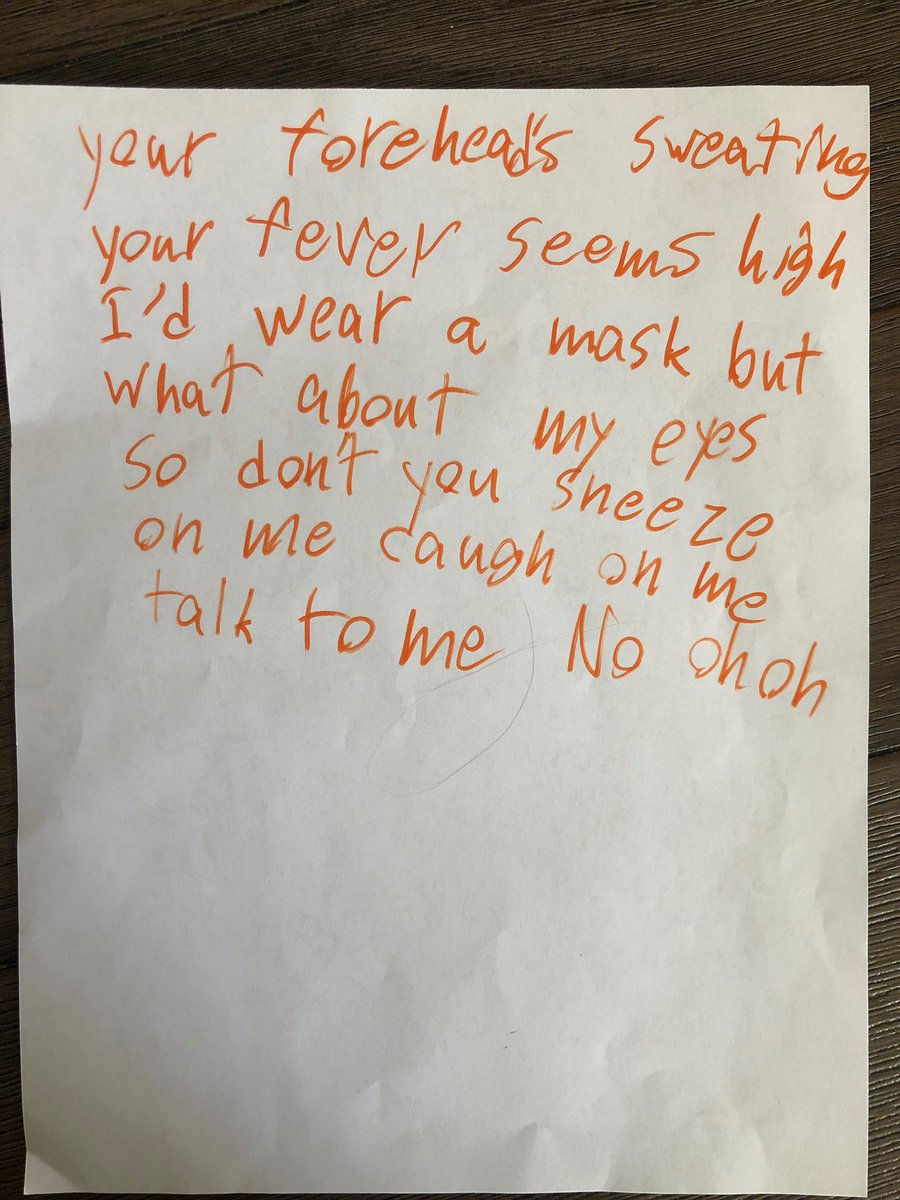 your forehead's sweating
your fever seems high
I'd wear a mask but
what about my eyes
So don't you sneeze
on me caugh on me
talk to me No oh oh